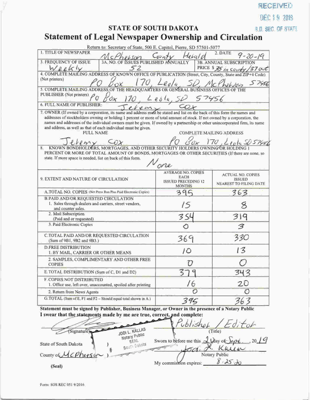 RECEIVED
DEC 19 2019
S.D. SEC. OF STATE
STATE OF SOUTH DAKOTA
Statement of Legal Newspaper Ownership and Circulation
Return to: Secretary of State, 500 E. Capitol, Pierre, SD 57501-5077
1. TITLE OF NEWSPAPER McPherson County Herald 2. DATE 9-20-19
3. FREQUENCY OF ISSUE Weekly
3A. NO. OF ISSUES PUBLISHED ANNUALLY 52
3B. ANNUAL SUBSCRIPTION PRICE $
4. COMPLETE MAILING ADDRESS OF KNOWN OFFICE OF PUBLICATION (Street, City, County, State and ZIP+4 Code) (Not printers)
PO Box 170, Leola, SD McPherson 57456
5. COMPLETE MAILING ADDRESS OF THE HEADQUARTERS OR GENERAL BUSINESS OFFICES OF THE PUBLISHER (Not printers)
PO Box 170, Leola, SD 57456
6. FULL NAME OF PUBLISHER: Jeremy Cox
7. OWNER (If owned by a corporation, its name and address shall be stated and list on the back of this form the names and
addresses of stockholders owning or holding 1 percent or more of total amount of stock. If not owned by a corporation, the
names and addresses of the individual owners must be given. If owned by a partnership or other unincorporated firm, its name
and address, as well as that of each individual must be given.)
FULL NAME COMPLETE MAILING ADDRESS
Jeremy Cox PO Box 170, Leola, SD 57456
8. KNOWN BONDHOLDERS, MORTGAGEES, AND OTHER SECURITY HOLDERS OWNING OR HOLDING 1
PERCENT OR MORE OF TOTAL AMOUNT OF BONDS, MORTGAGES OR OTHER SECURITIES (If there are none, so
state. If more space is needed, list on back of this form.)
None
9. EXTENT AND NATURE OF CIRCULATION
AVERAGE NO. COPIES EACH ISSUED PRECEDING 12 MONTHS
ACTUAL NO. COPIES ISSUED NEAREST TO FILING DATE
A. TOTAL NO. COPIES 395 363
B. PAID AND/OR REQUESTED CIRCULATION
1. Sales through dealers and carriers, street vendors, and counter sales. 15 8
2. Mail Subscription (Paid and or requested) 354 319
3. Paid Electronic Copies 0 3
C. TOTAL PAID AND/OR REQUESTED CIRCULATION (Sum of 9B1, 9B2 and 9B3.) 369 330
D. FREE DISTRIBUTION
1. BY MAIL, CARRIER OR OTHER MEANS 10 13
2. SAMPLES, COMPLIMENTARY AND OTHER FREE COPIES 0 0
E. TOTAL DISTRIBUTION (Sum of C, D1 and D2) 379 343
F. COPIES NOT DISTRIBUTED
1. Office use, left over, unaccounted, spoiled after printing 16 20
2. Return from News Agents 0 0
G. TOTAL (Sum of E, F1 and F2 - Should equal total shown in A.) 395 363
Statement must be signed by Publisher, Business Manager, or Owner in the presence of a Notary Public
I swear that the statements made by me are true, correct, and complete:
Publisher / Editor
(Signature) (Title)
State of South Dakota
County of McPherson
(Seal)
Sworn to before me this 20 day of Sept 2019
Notary Public
My commission expires: 8-25-20